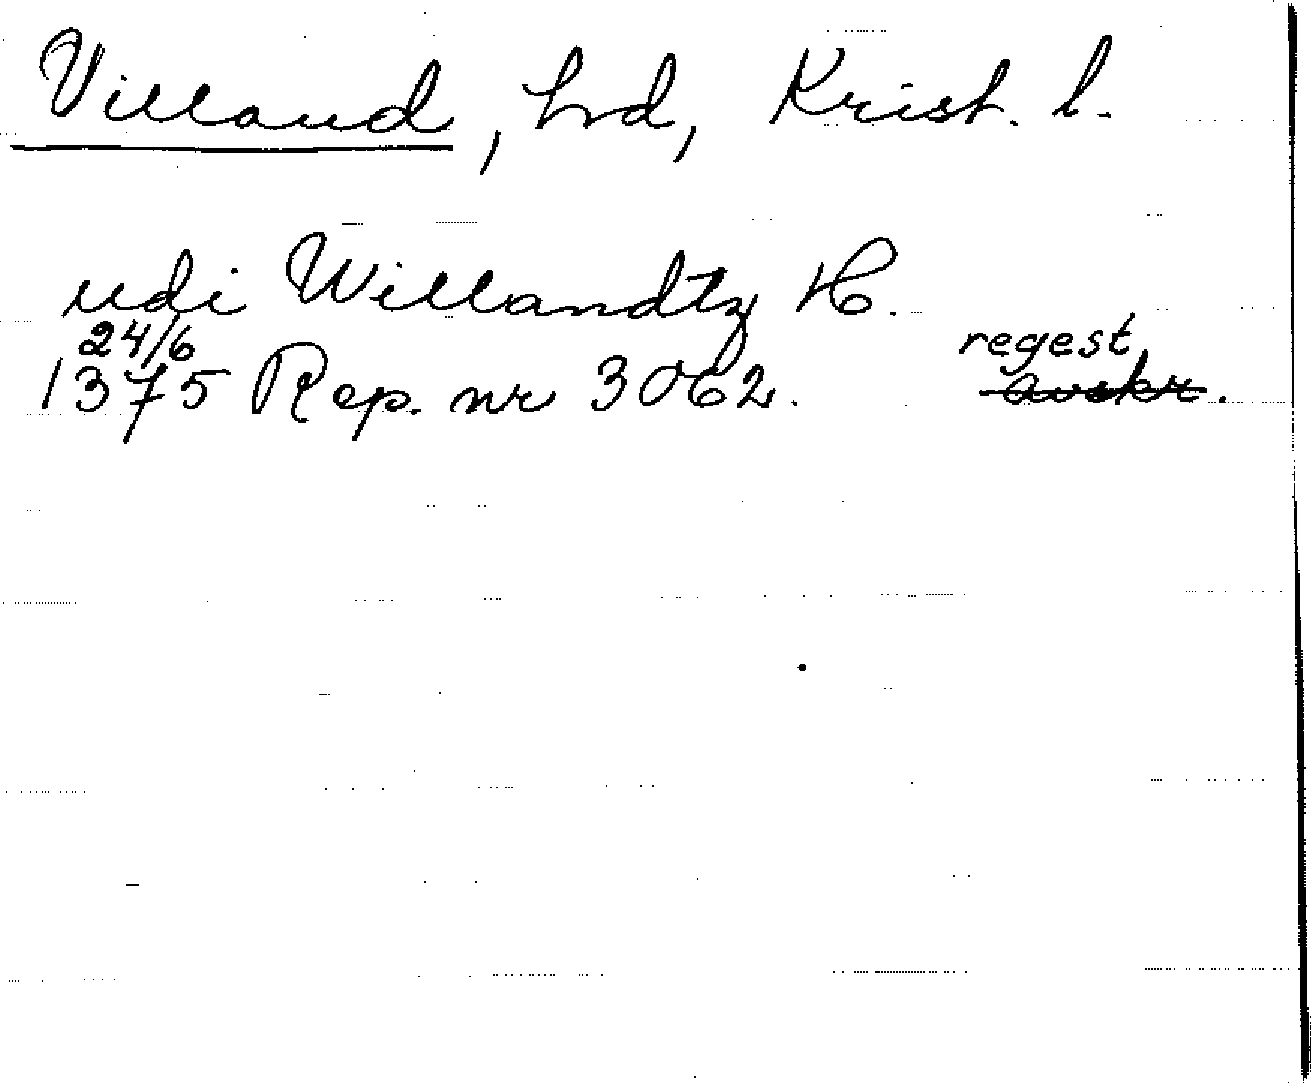 Villand, hd, Krist. l.
udi Willandtz H.
24/6 regest.
1375 Rep. nr 3062. avskr.